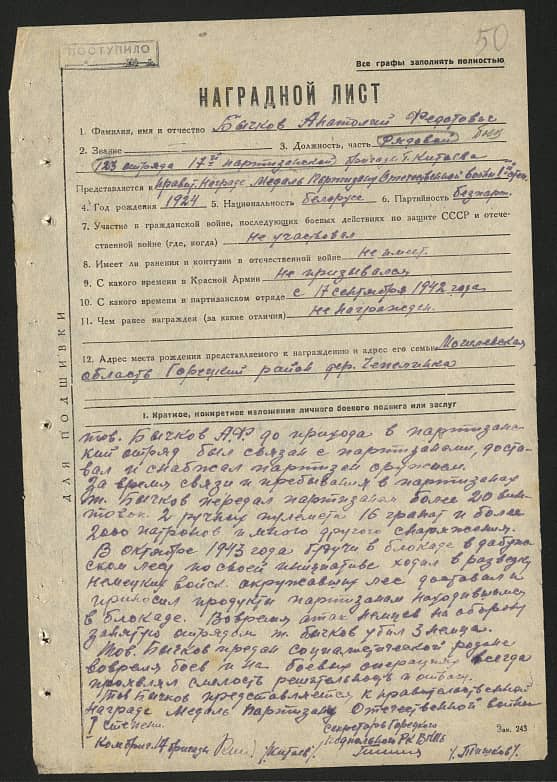 50
ПОСТУПИЛО
Все графы заполнять полностью
НАГРАДНОЙ ЛИСТ
1. Фамилия, имя и отчество Бычков Анатолий Федотович
2. Звание 3. Должность, часть Рядовой
123 отряда 17й партизанской бригады т. Китаева
Представляется к правит. Награде Медаль Партизану Отечественной войны
4. Год рождения 1924 5. Национальность белорусс 6. Партийность безпарт.
7. Участие в гражданской войне, последующих боевых действиях по защите СССР и отече-
ственной войне (где, когда) не участвовал
8. Имеет ли ранения и контузии в отечественной войне не имеет.
9. С какого времени в Красной Армии не призывался
10. С какого времени в партизанском отряде с 17 сентября 1942 года
11. Чем ранее награжден (за какие отличия) не награжден.
12. Адрес места рождения представляемого к награждению и адрес его семьи Могилевская
область Горецкий район дер.
ДЛЯ ПОДШИВКИ
I. Краткое, конкретное изложение личного боевого подвига или заслуг
тов. Бычков АФ до прихода в партизанс-
кий отряд был связан с партизанами, доста-
вал и снабжал партизан оружием.
За время связи и пребывания в партизанах
т. Бычков передал партизанам более 20 вин-
товок 2 ручных пулемета 16 гранат и более
2000 патронов и много другого снаряжения.
В Октябре 1943 года будучи в блокаде в
лесу по своей инициативе ходил в разведку
немецких войск окружавших лес доставал и
приносил продукты партизанам находившимся
в блокаде. Вовремя атак немцев на оборону
занятую отрядом т. Бычков убил 3 немца.
Тов. Бычков предан социалистической родине
вовремя боев и на боевых операциях всегда
проявлял смелость решительность и отвагу.
Тов Бычков представляется к правительственной
награде Медаль Партизану Отечественной войны
I степени.
Секретарь Горецкого
Комбриг 17 бригады /Китаев/ подпольного РК ВКПб
/Тишков/.
Зак. 243